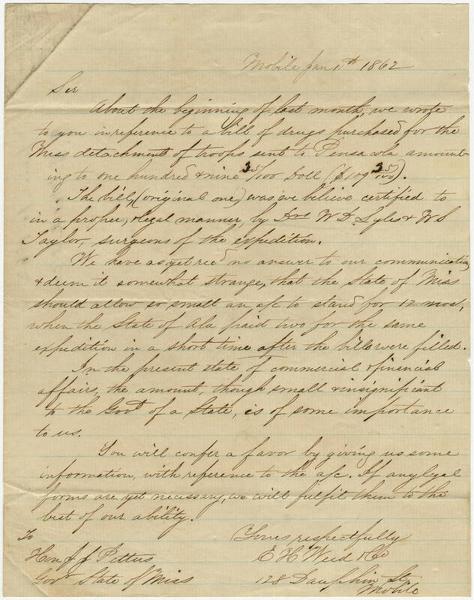 Mobile Jan 1st 1862
Sir
About the beginning of last month, we wrote
to you in reference to a bill of drugs purchased for the
Miss detachment of troops sent to Pensacola amount-
ing to one hundred & nine 35/100 Doll ($109 35/100).
The bill, (original one) was we believe certified to
in a proper, & legal manner, by Drs W D. Lyles & W S
Taylor, surgeons of the expedition.
We have as yet recd no answer to our communication
& deem it somewhat strange, that the State of Miss
should allow so small an a/c to stand for 12 mos,
when the State of Ala paid two for the same
expedition in a short time after the bills were filled.
In the present state of commercial & financial
affairs, the amount, though small & insignificant
to the Govt of a State, is of some importance
to us.
You will confer a favor by giving us some
information, with reference to the a/c. If any legal
forms are yet necessary, we will fulfil them to the
best of our ability.
Yours respectfully
To
Hon J. J. Pettus
Govr State of Miss
E H Weed & Co
128 Dauphin St,
Mobile